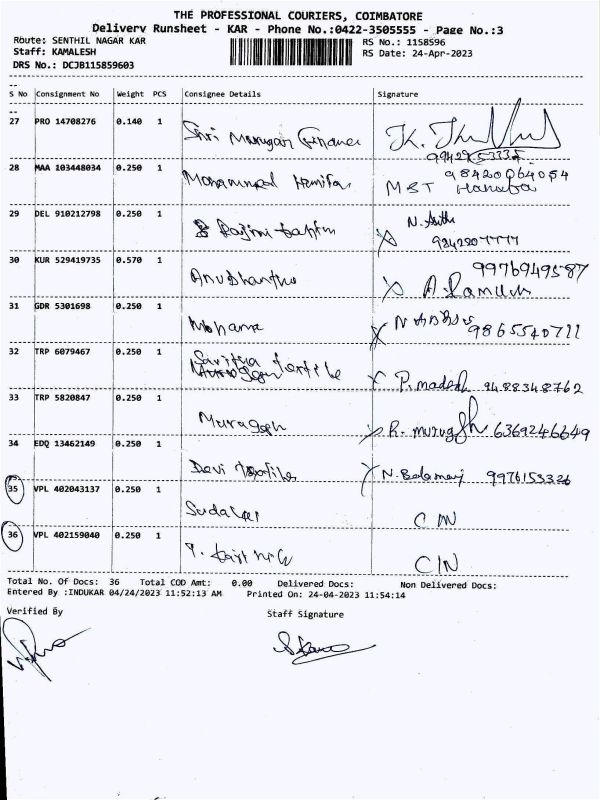 THE PROFESSIONAL COURIERS, COIMBATORE
Delivery Runsheet - KAR - Phone No.:0422-3505555 - Page No.:3
Route: SENTHIL NAGAR KAR RS No.: 1158596
Staff: KAMALESH RS Date: 24-Apr-2023
DRS No.: DCJB115859603
S No Consignment No Weight PCS Consignee Details Signature
27 PRO 14708276 0.140 1
Shri Murugan Finance
28 MAA 103448034 0.250 1
Mohammed
MST Hanifa
29 DEL 910212798 0.250 1
30 KUR 529419735 0.570 1 9976949587
31 GDR 5301698 0.250 1
Mohana 9865540711
32 TRP 6079467 0.250 1
Savitha textile P. madesh 9488348762
33 TRP 5820847 0.250 1
Murugesh R. murugesh 6369246649
34 EDQ 13462149 0.250 1
Devi textiles 9976153326
35 VPL 402043137 0.250 1
CIN
36 VPL 402159040 0.250 1
CIN
Total No. Of Docs: 36 Total COD Amt: 0.00 Delivered Docs: Non Delivered Docs:
Entered By :INDUKAR 04/24/2023 11:52:13 AM Printed On: 24-04-2023 11:54:14
Verified By Staff Signature